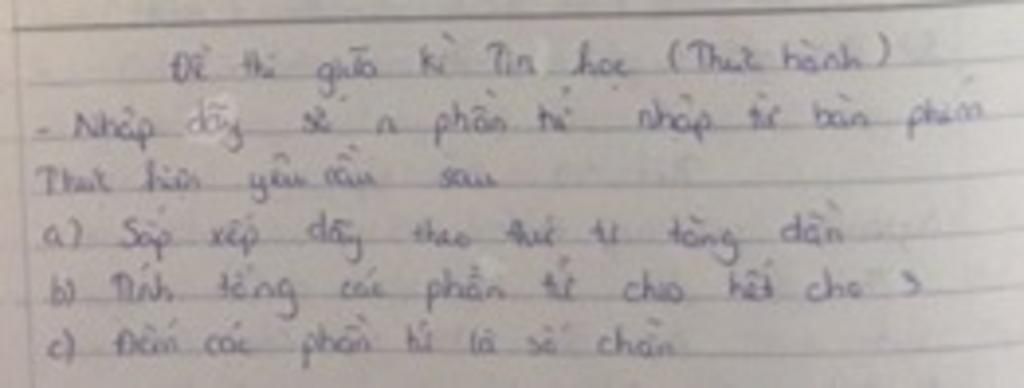 Đề thi giữa kì Tin học (Thực hành)
- Nhập dãy số n phần tử nhập từ bàn phím
Thực hiện yêu cầu sau
a) Sắp xếp dãy theo thứ tự tăng dần
b) Tính tổng các phần tử chia hết cho 3
c) Đếm các phần tử là số chẵn